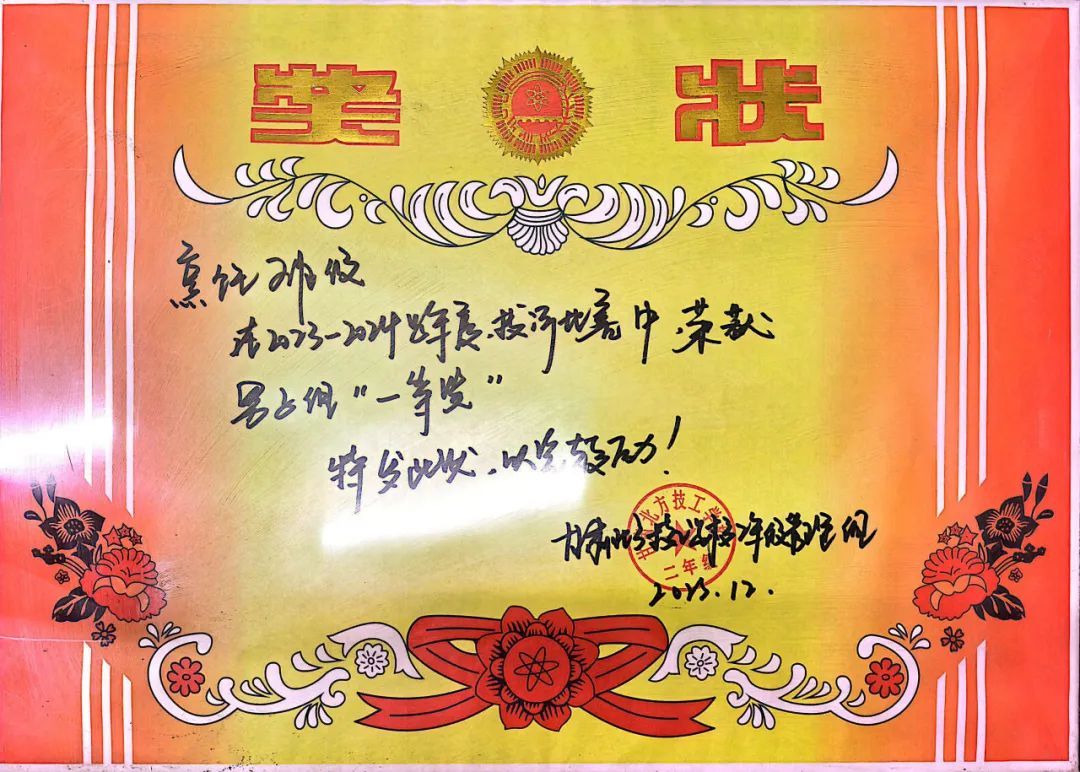 奖状
烹饪班级
在2023-2024学年度拔河比赛中，荣获
男子组“一等奖”
特发此状，以资鼓励！
甘肃北方技工学校二年级管理组
二年级
2023.12.